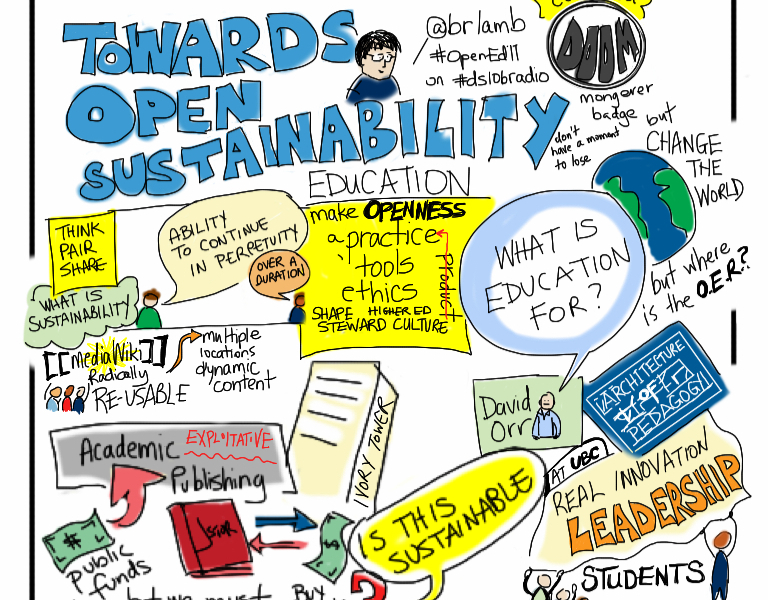 TOWARDS
OPEN
SUSTAINABILITY
EDUCATION
@brlamb
#OpenEd11
on #ds106radio
DOOM
mongerer
badge
don't
have a moment
to lose
but
CHANGE
THE
WORLD
but where
is the O.E.R.?
THINK
PAIR
SHARE
WHAT IS
SUSTAINABILITY
ABILITY
TO CONTINUE
IN PERPETUITY
OVER A
DURATION
make OPENNESS
a practice
tools
ethics
SHAPE HIGHER ED
STEWARD CULTURE
Product
WHAT IS
EDUCATION
FOR?
David
Orr
ARCHITECTURE
OF
PEDAGOGY
[[mediaWiki]]
Radically
RE-USABLE
multiple
locations
dynamic
content
IVORY TOWER
Academic EXPLOITATIVE
Publishing
Public
funds
JSTOR
$
IS THIS
SUSTAINABLE
AT UBC
REAL INNOVATION
LEADERSHIP
STUDENTS
but we must
BUY